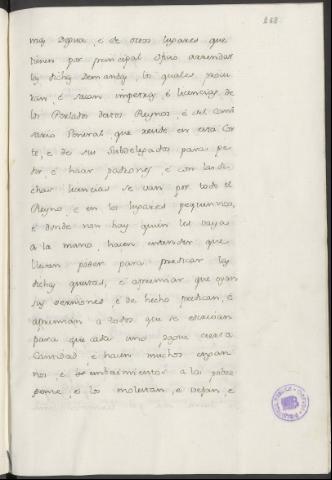 268
mas Segura, é de otros lugares que
tienen por principal oficio arrendar
las dichas Demandas, los quales
é sacan impetras, é licencias de
los Perlados destos Reynos, é del Comi
sario General, que reside en esta Cor
te, é de sus Subdelegados para pe
dir, é hacer padrones, é con las di
chas licencias se van por todo el
Reyno, é en los lugares pequeños,
é donde non hay quien les vaya
a la mano, hacen entender que
llevan poder para predicar las
dichas questas, é apremiar que oyan
sus sermones, é de hecho predican, é
apremian a todos que se escrivan
para que cada uno pague cierta
Cantidad, é hacen muchos engan
nos é a los pobre
gente, é los molestan, é vejan, é